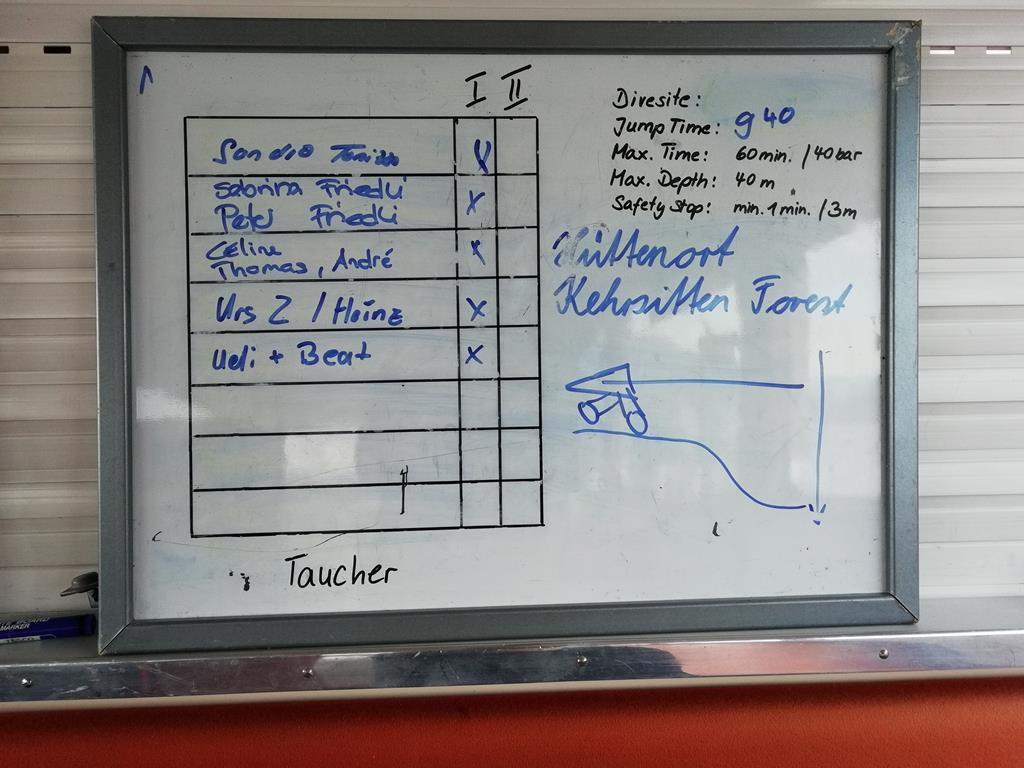 I II
Sandro
Sabrina Friedli
Peter Friedli
Céline
Thomas, André
Urs Z / Heinz
Ueli + Beat
Taucher
Divesite:
Jump Time: 940
Max. Time: 60min. / 40bar
Max. Depth: 40m
Safety Stop: min. 1min. / 3m
Hüttenort
Kehrsitten Forest
MARKER